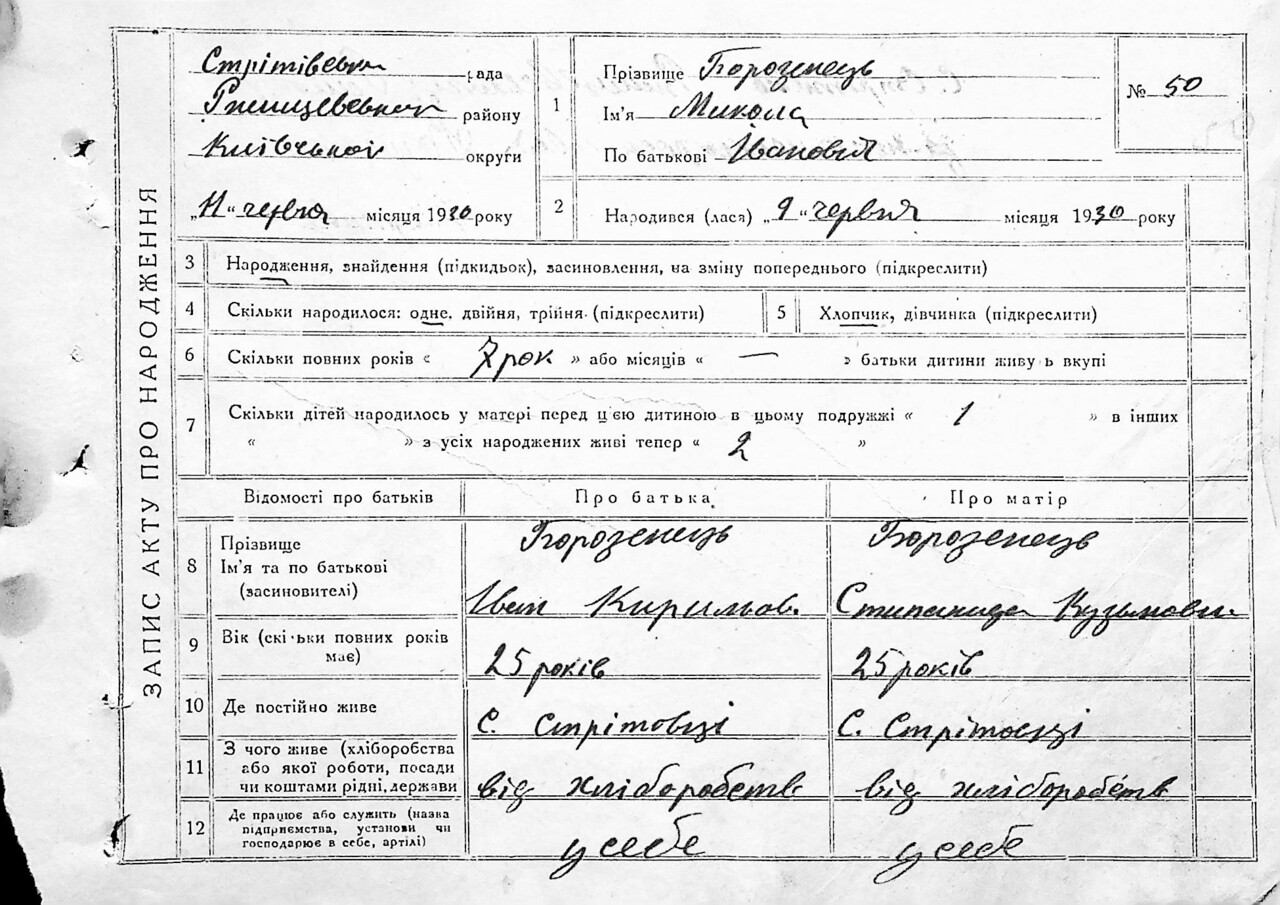 ЗАПИС АКТУ ПРО НАРОДЖЕННЯ
Стрітівська рада
Ржищевського району
Київської округи
„11“ червня місяця 1930 року
1
Прізвище Борозенець
Ім'я Микола
По батькові Іванович
№ 50
2
Народився (лася) „9“ червня місяця 1930 року
3 Народження, знайдення (підкидьок), засиновлення, на зміну попереднього (підкреслити)
4 Скільки народилося: одне, двійня, трійня (підкреслити)
5 Хлопчик, дівчинка (підкреслити)
6 Скільки повних років « 7 рок » або місяців « — » батьки дитини живуь вкупі
7 Скільки дітей народилось у матері перед ц'єю дитиною в цьому подружжі « 1 » в інших
« » з усіх народжених живі тепер « 2 »
Відомості про батьків Про батька Про матір
8 Прізвище
Ім'я та по батькові
(засиновителі)
Борозенець
Іван Кирилов.
Борозенець
Степанида Кузьмовн.
9 Вік (скільки повних років
має)
25 років
25 років
10 Де постійно живе
С. Стрітовці
С. Стрітовці
11 З чого живе (хліборобства
або якої роботи, посади
чи коштами рідні, держави
від хліборобств
від хліборобств
12 Де працює або служить (назва
підприємства, установи чи
господарює в себе, артілі)
у себе
у себе